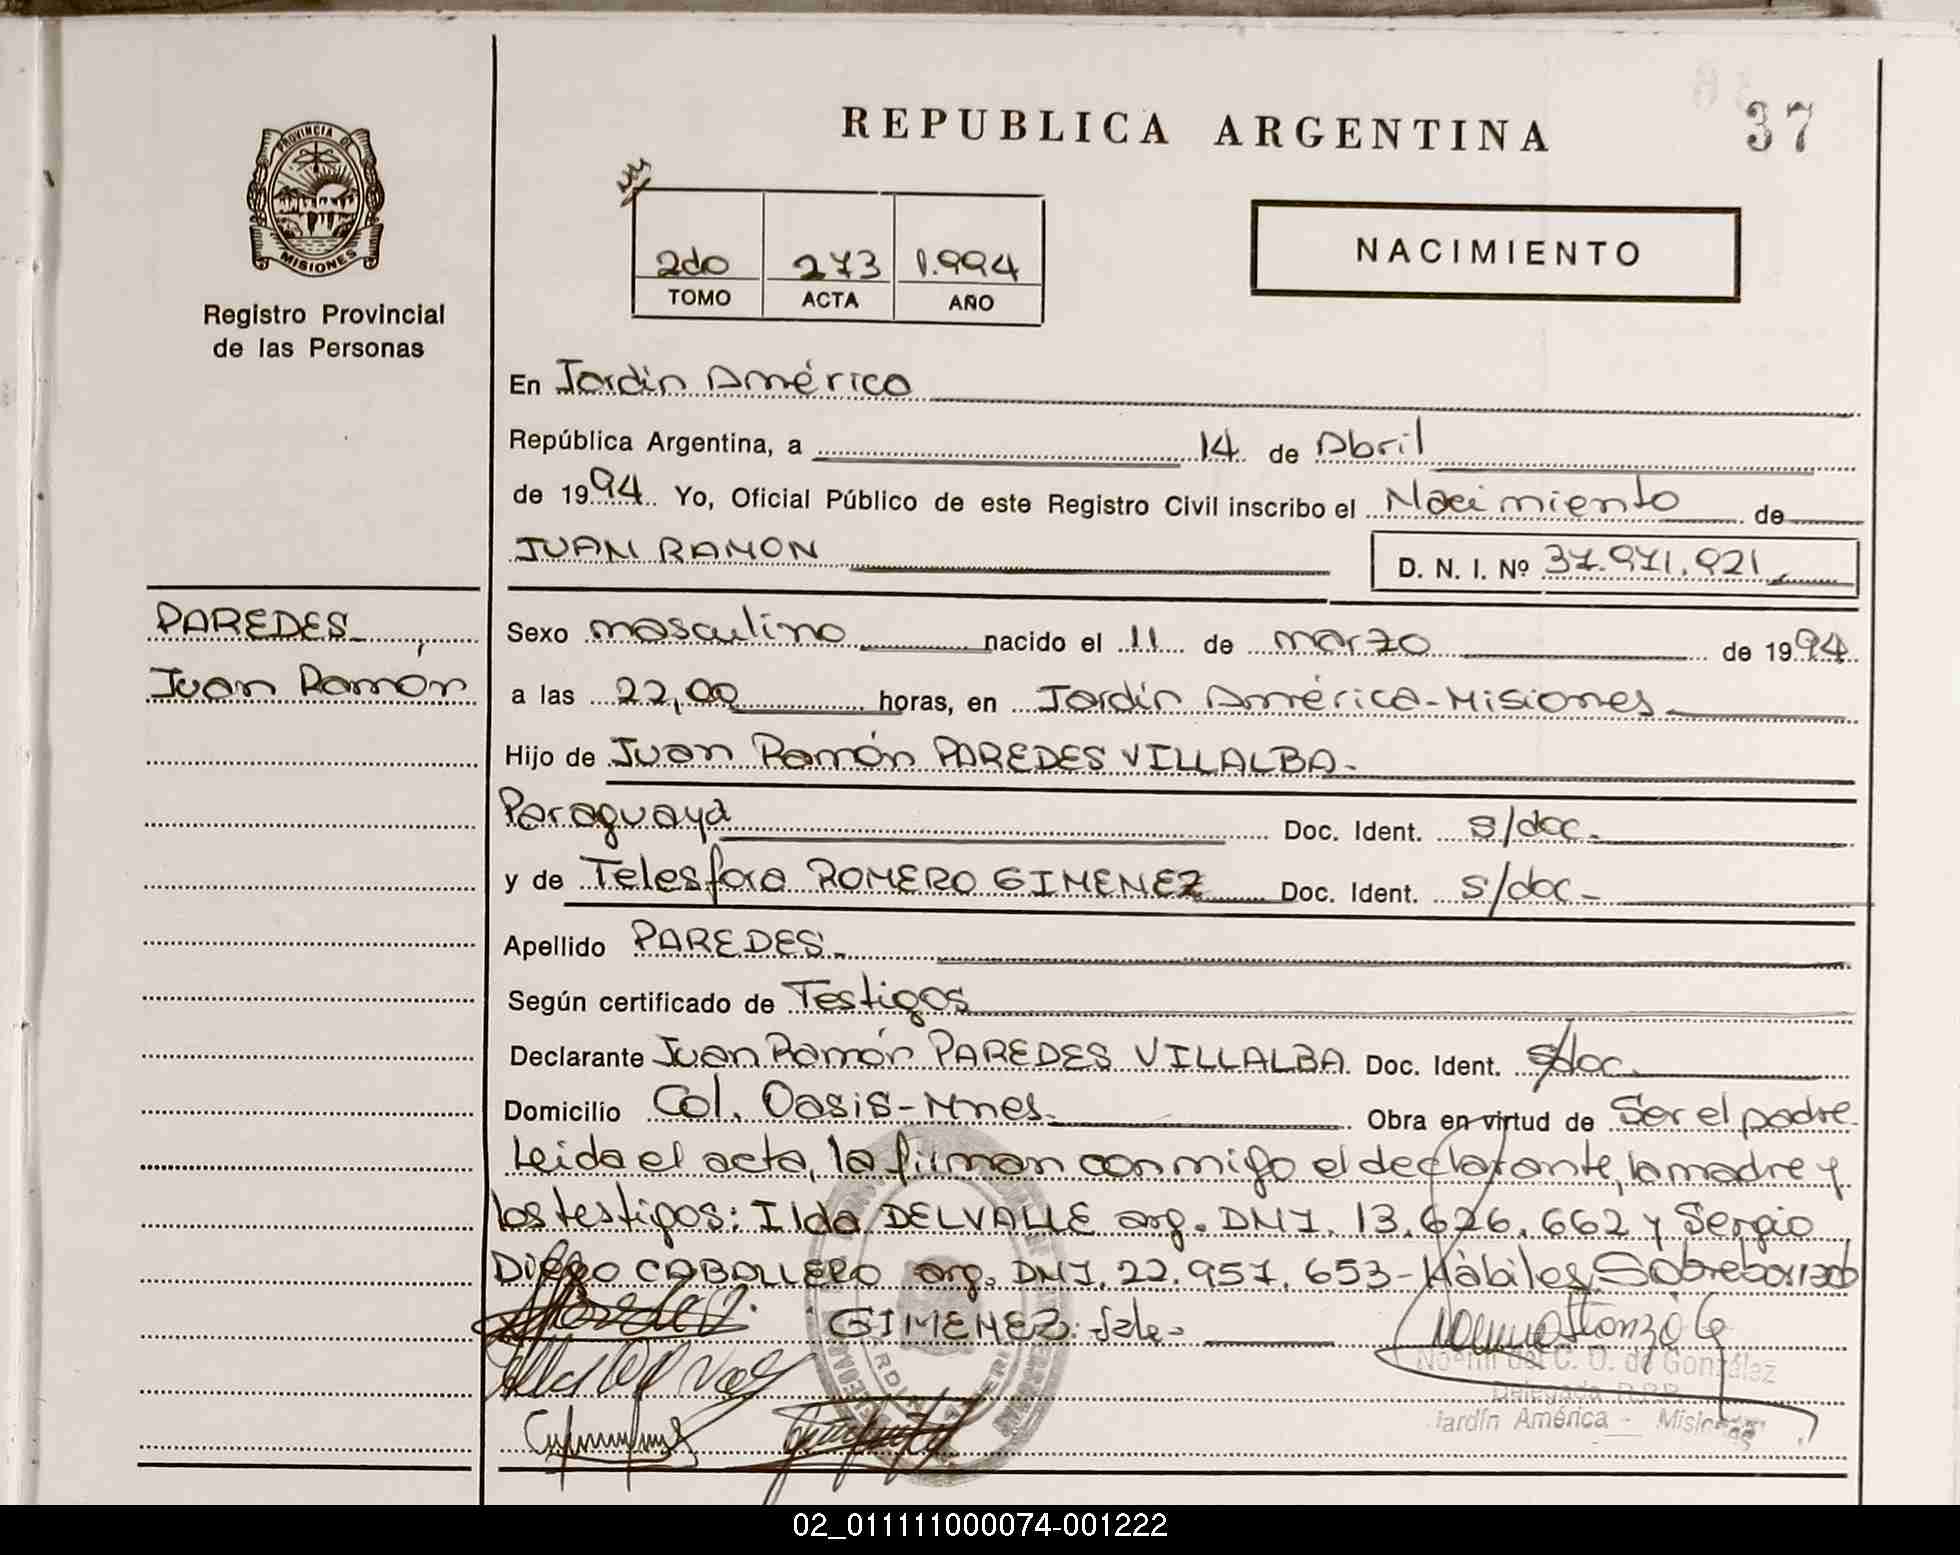 REPUBLICA ARGENTINA
37
PROVINCIA DE
MISIONES
Registro Provincial
de las Personas
2do 273 1.994
TOMO ACTA AÑO
NACIMIENTO
En Jardín América
República Argentina, a 14 de Abril
de 1994 Yo, Oficial Público de este Registro Civil inscribo el Nacimiento de
JUAN RAMON D. N. I. Nº 37.971.921
PAREDES,
Juan Ramón
Sexo masculino nacido el 11 de marzo de 1994
a las 22,00 horas, en Jardín América-Misiones
Hijo de Juan Ramón PAREDES VILLALBA.
Paraguaya Doc. Ident. s/doc.
y de Telesfora ROMERO GIMENEZ Doc. Ident. s/doc-
Apellido PAREDES.
Según certificado de Testigos
Declarante Juan Ramón PAREDES VILLALBA. Doc. Ident. s/doc.
Domicilio Col. Oasis-Mnes. Obra en virtud de Ser el padre.
Leida el acta, la firman conmigo el declarante, la madre y
los testigos: Ilda DELVALLE arg. DNI. 13.626.662 y Sergio
Diego CABALLERO arg. DNI. 22.957.653-Hábiles Sobreborrado
GIMENEZ: Vale-
Noemi del C. O. de González
Delegada R.P.P.
Jardín América - Misiones
02_011111000074-001222